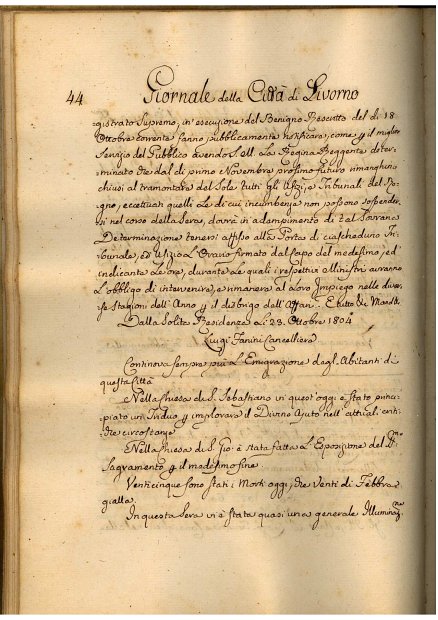 44 Giornale della Città di Livorno
gistrato Supremo, in esecuzione del Benigno Rescritto del dì 18
Ottobre corrente fanno pubblicamente notificare, come p il miglior
Servizio del Pubblico avendo S. M. La Regina Reggente deter-
minato che dal dì primo Novembre prossimo futuro rimanghino
chiusi al tramontare del Sole tutti gli Ufizi, e Tribunali del Re-
gno, eccettuati quelli Le di cui incumbenze non possono sospender-
si nel corso della Sera, dovrà in adempimento di tal Sovrana
Determinazione tenersi affisso alla Porta di ciascheduno Tri-
bunale, ed Ufizio L'Orario firmato dal Capo del medesimo, ed
indicante Le ore, durante Le quali i respettivi Ministri avranno
L'obbligo di intervenire, e rimanere al Loro Impiego nelle diver-
se Stagioni dell'Anno p il disbrigo dell'Affari. E tutto di Mand.
Dalla Solita Residenza Li 23. Ottobre 1804
Luigi Fanini Cancelliere
Continova sempre più L'Emigrazione degl'Abitanti di
questa Città
Nella Chiesa di S. Sebastiano in quest'oggi è stato princi-
piato un Triduo p implorare il Divino Ajuto nell'attuali criti-
che circostanze
Nella Chiesa di S. Gio: è stata fatta L'Esposizione del SSmo
Sagramento p il medesimo fine
Venticinque sono stati i Morti oggi, che Venti di Febbre
gialla.
In questa Sera vi è stata quasi una generale Illuminazne